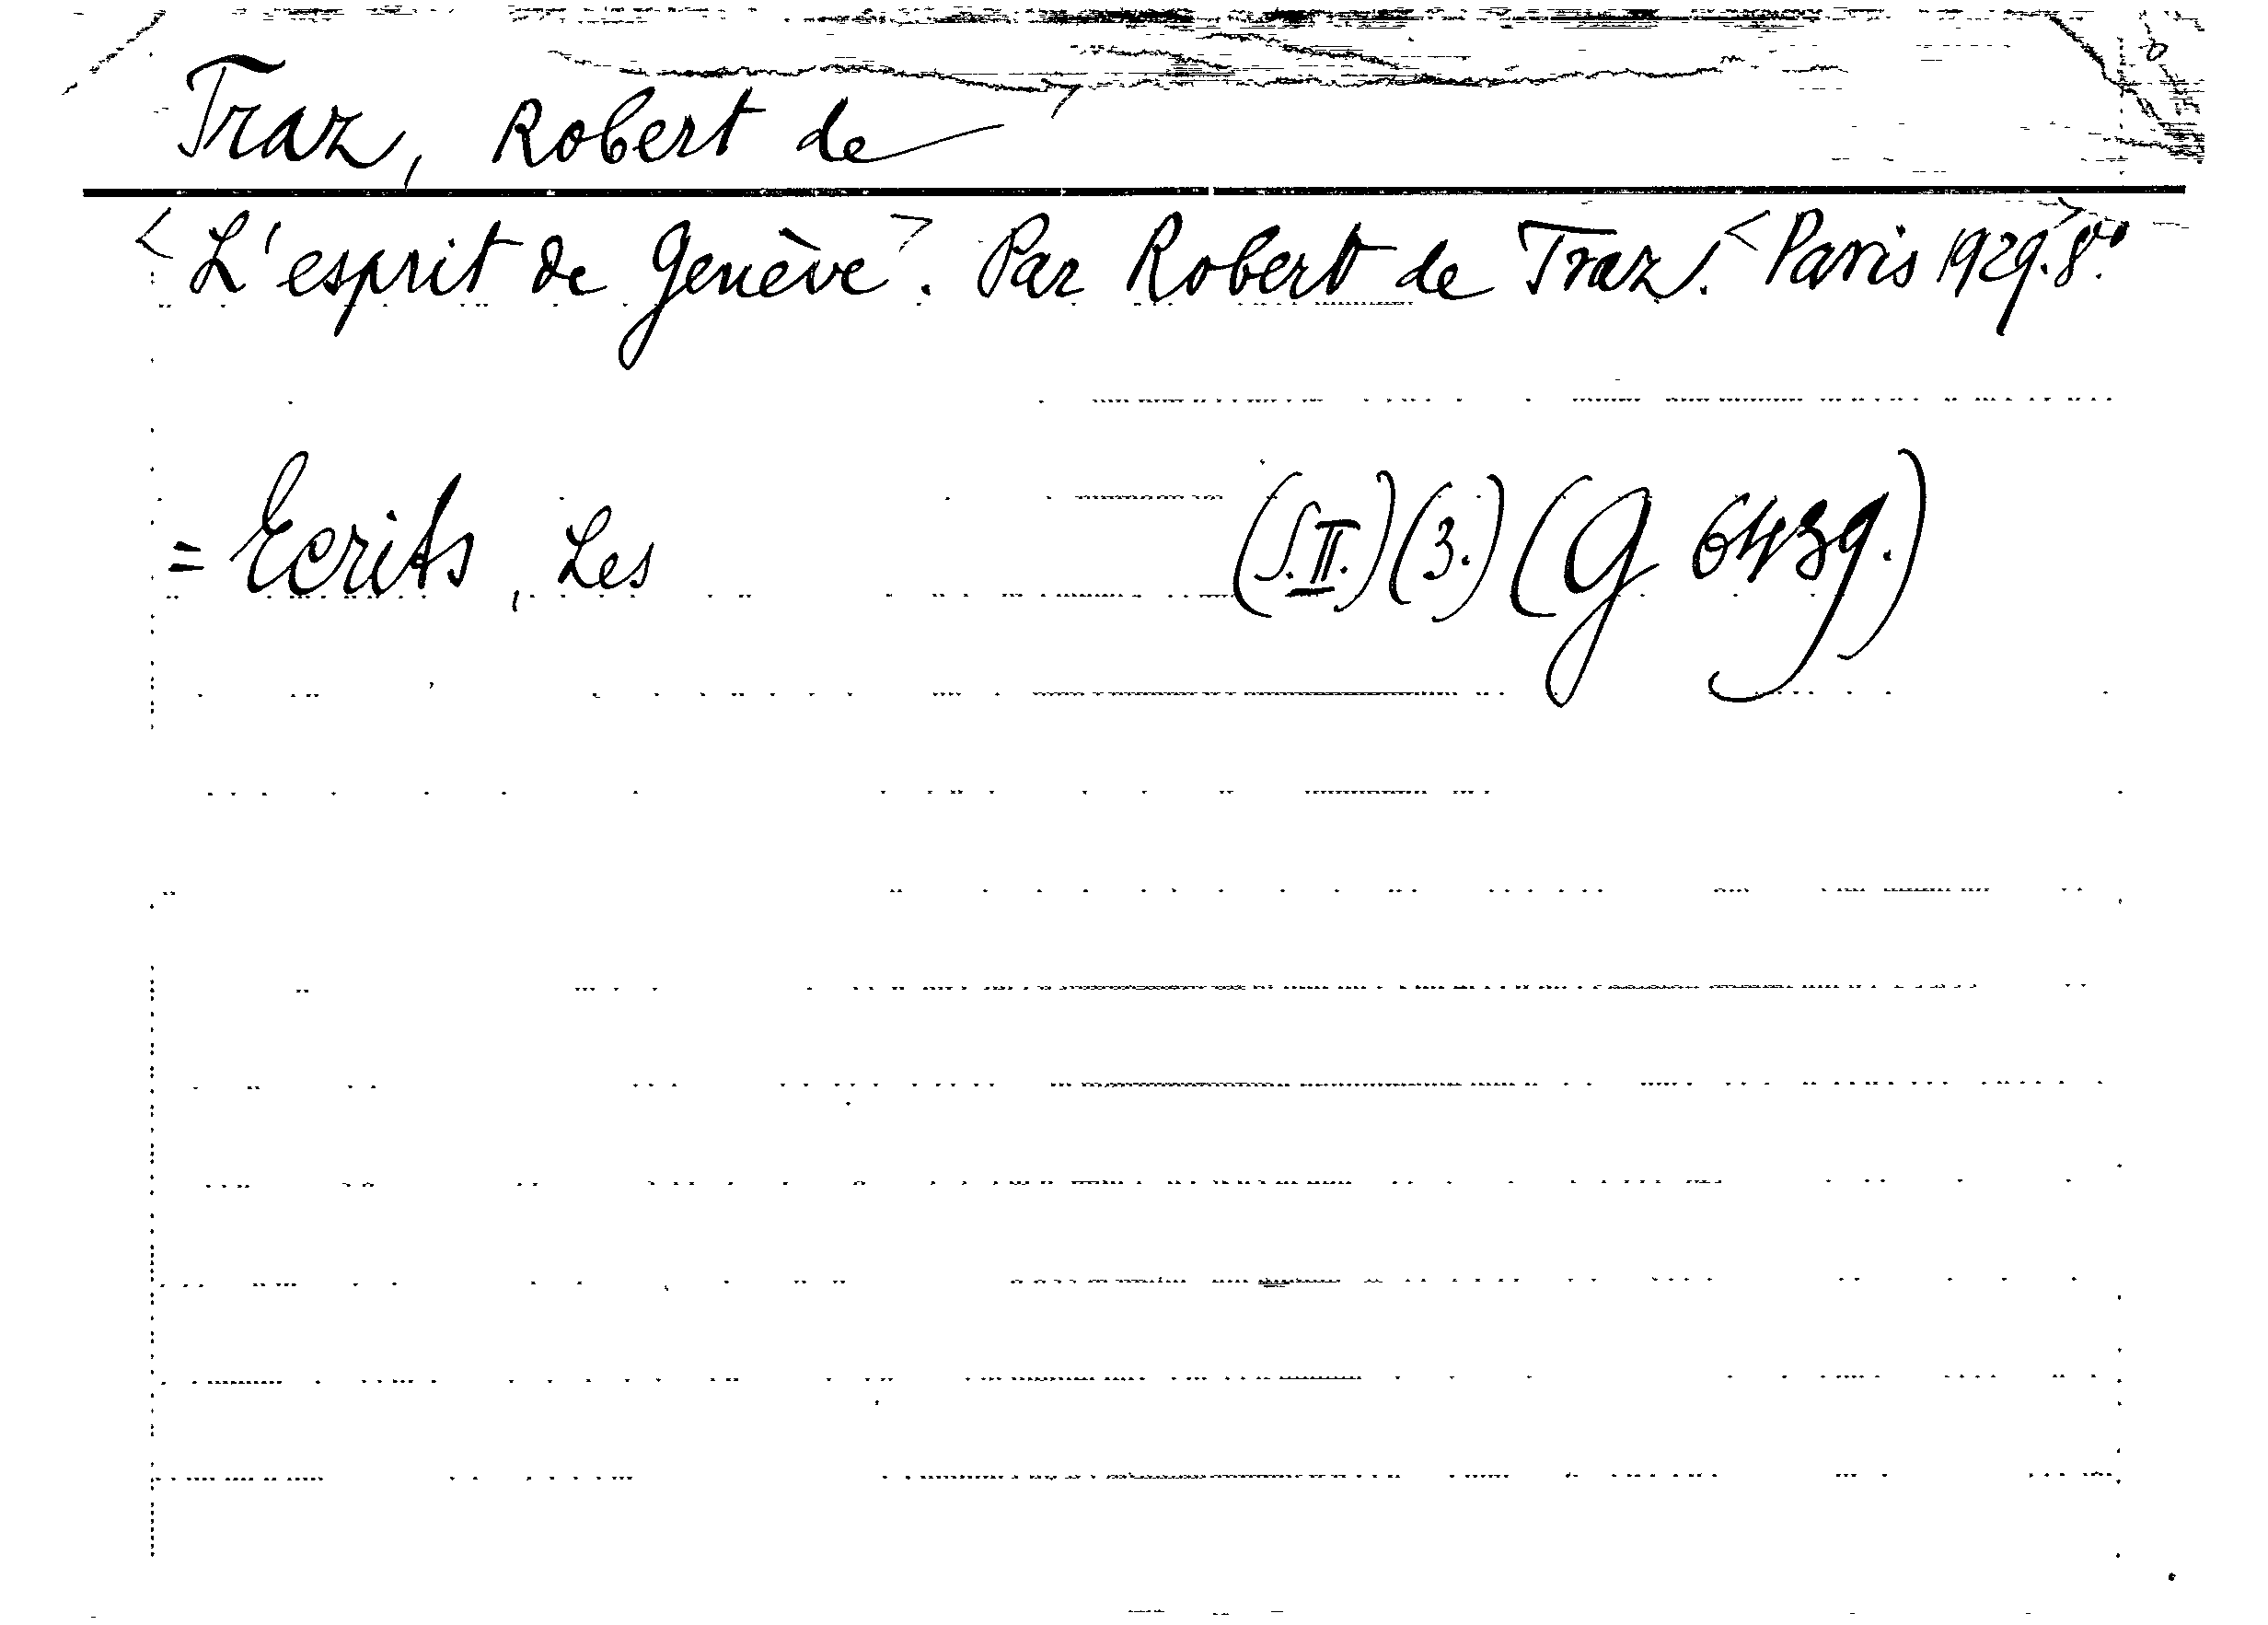 Traz, Robert de
<L'esprit de Genève>. Par Robert de Traz. <Paris 1929.> 8º.
= Ecrits, Les (S.II.)(3.)(G 6439.)